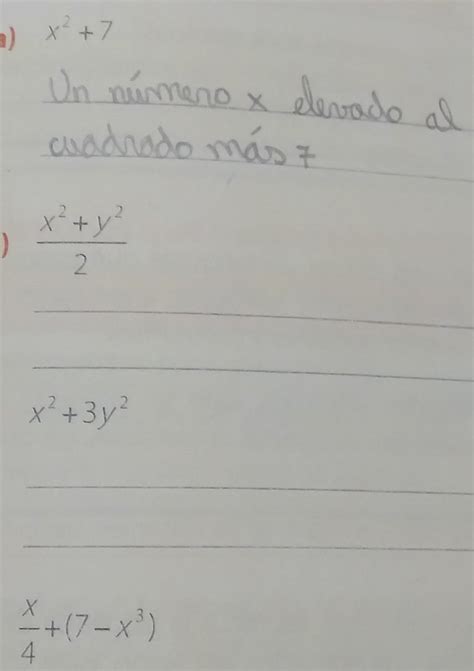 a) x² + 7
Un número x elevado al
cuadrado más 7
) x² + y² / 2
x² + 3y²
x/4 + (7 – x³)